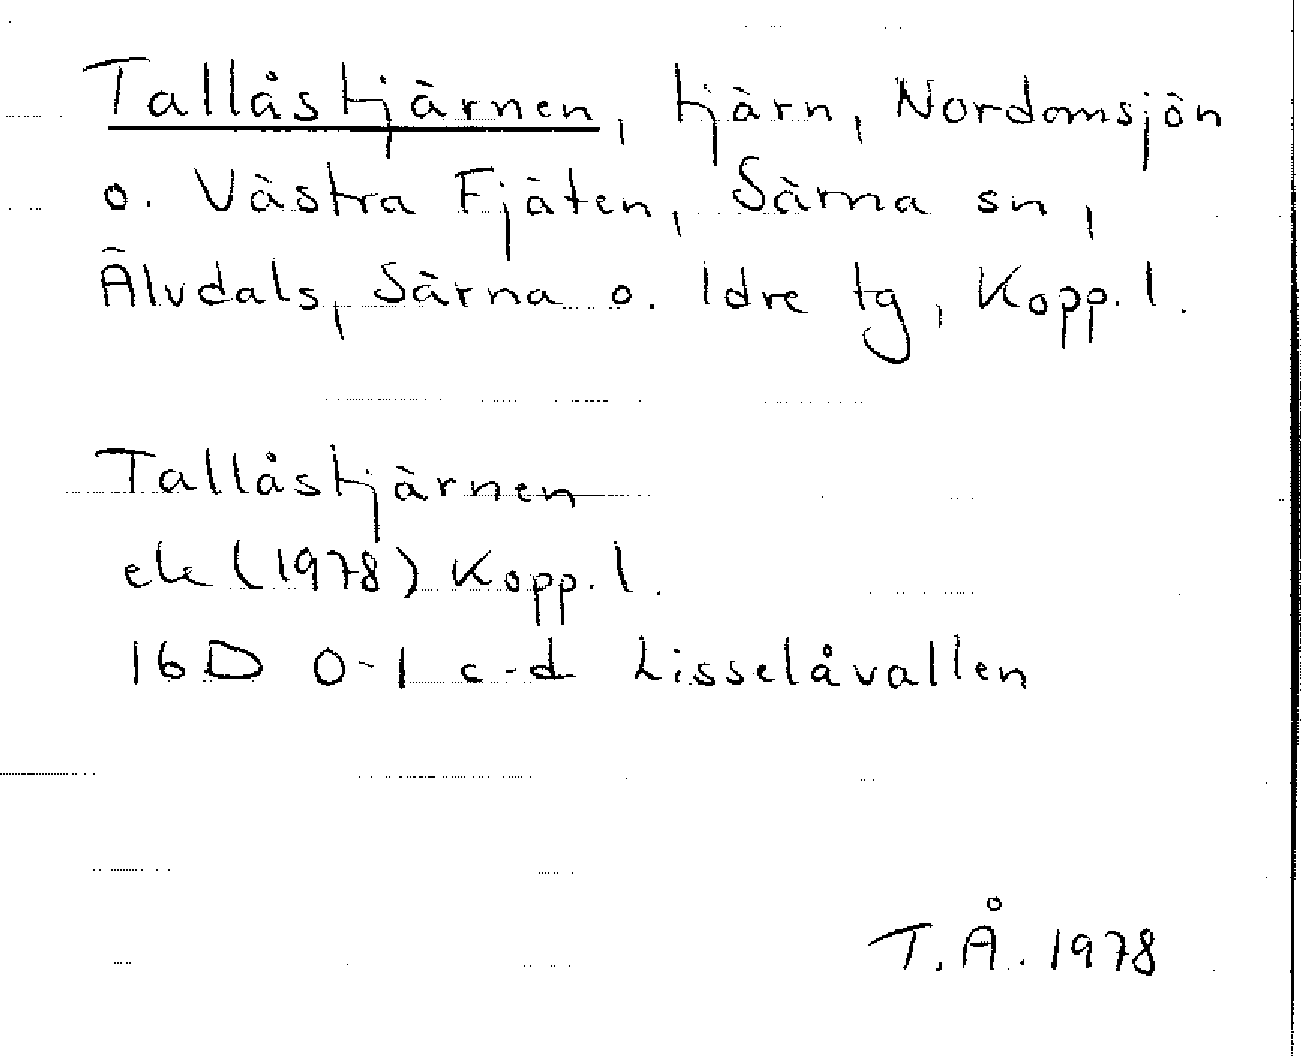 Tallåstjärnen, tjärn, Nordomsjön
o. Västra Fjäten, Särna sn,
Älvdals, Särna o. Idre tg, Kopp. l.
Tallåstjärnen
ek (1978) Kopp. l.
16 D 0-1 c-d Lisselåvallen
T. Å. 1978